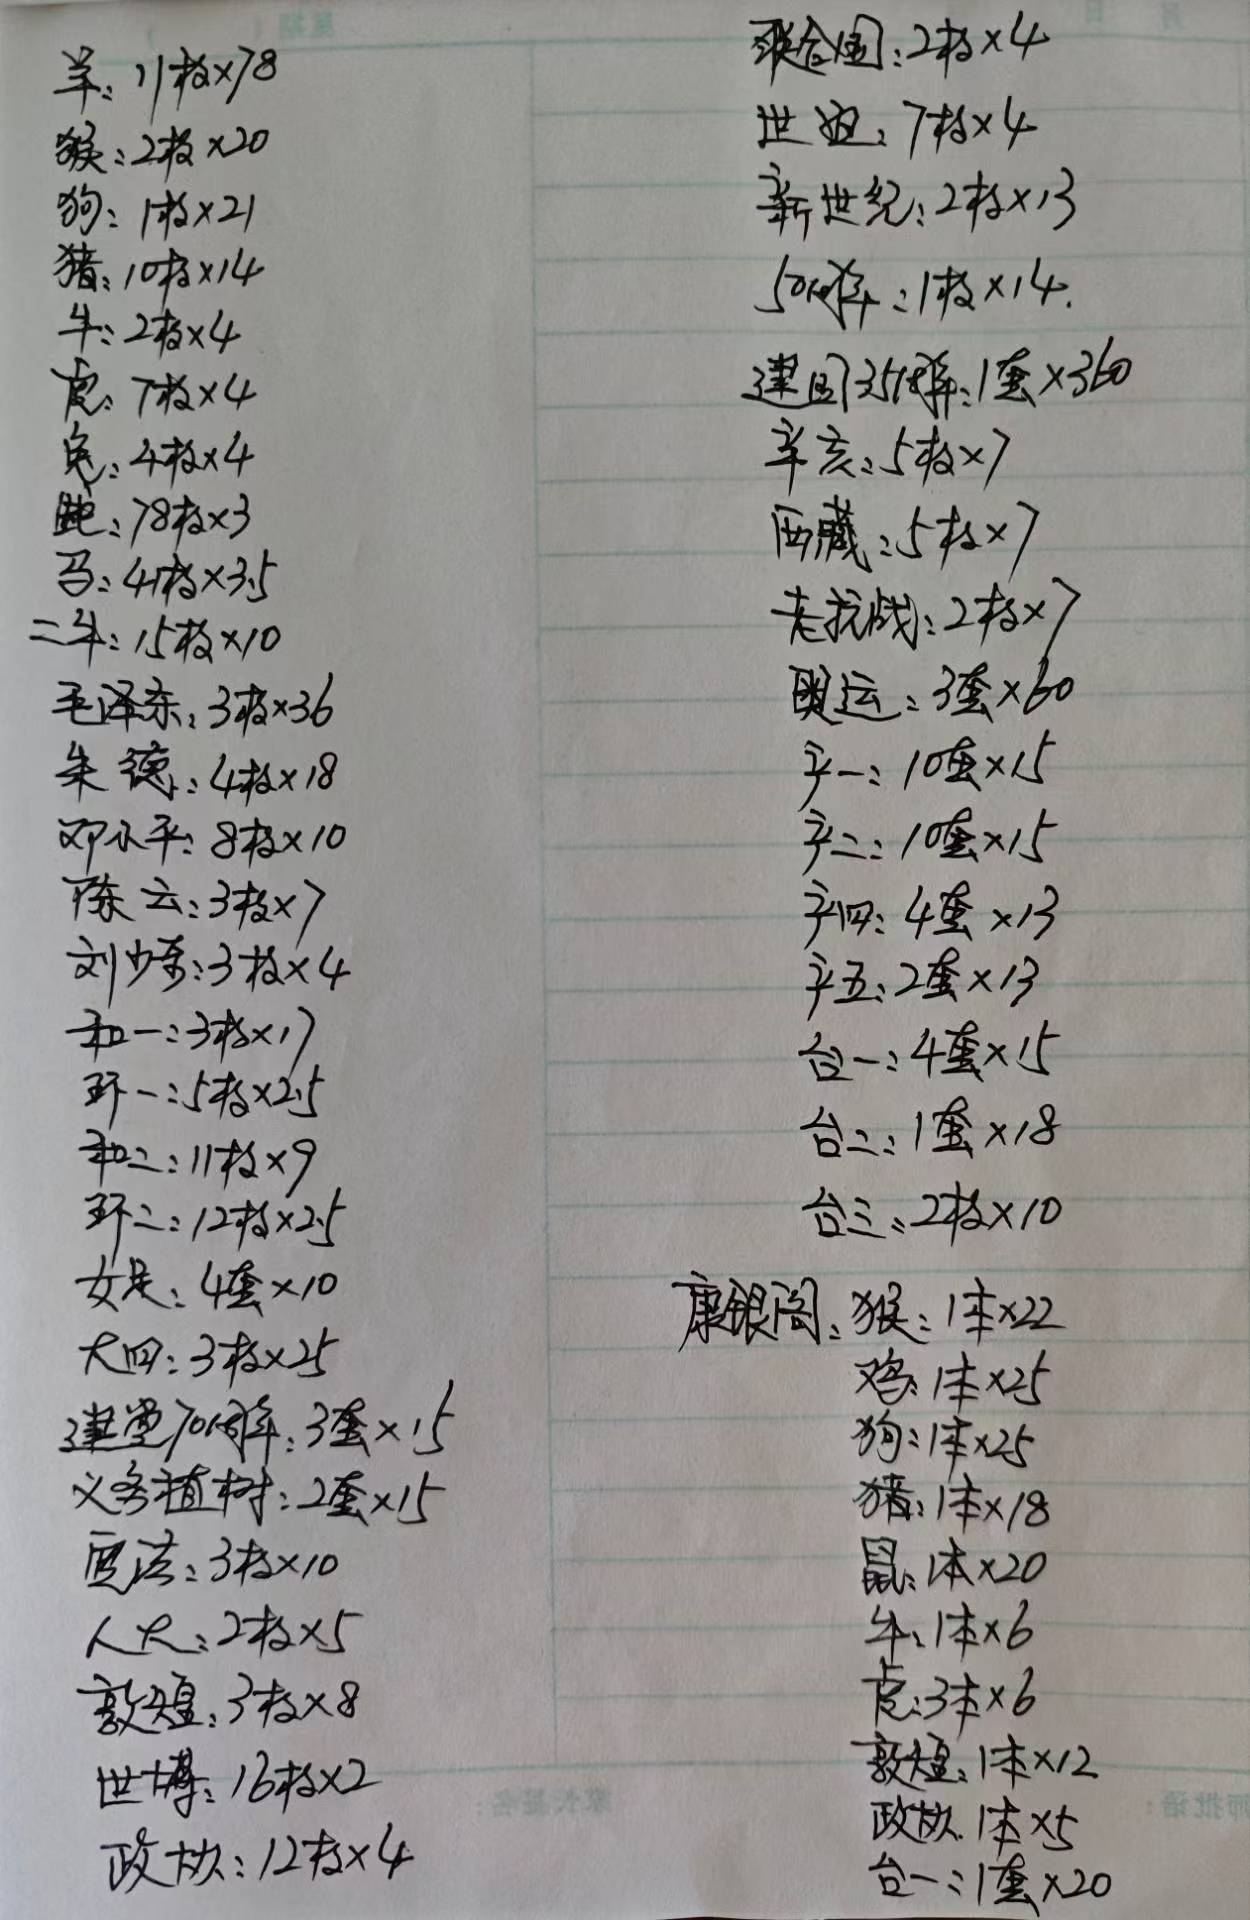 羊：11枚×78
猴：2枚×20
狗：1枚×21
猪：10枚×14
牛：2枚×4
虎：7枚×4
兔：4枚×4
蛇：78枚×3
马：41枚×3.5
二牛：15枚×10
毛泽东：3枚×36
朱德：4枚×18
邓小平：8枚×10
陈云：3枚×7
刘少奇：3枚×4
和一：3枚×17
环一：5枚×2.5
和二：11枚×9
环二：12枚×2.5
女足：4套×10
大四：3枚×25
建党70周年：3套×15
义务植树：2套×15
宪法：3枚×10
人大：2枚×5
敦煌：3枚×8
世博：16枚×2
政协：12枚×4
联合国：2枚×4
世妇：7枚×4
新世纪：2枚×13
50周年：1枚×14.
建国35周年：1套×360
辛亥：5枚×7
西藏：5枚×7
老抗战：2枚×7
奥运：3套×60
字一：10套×15
字二：10套×15
字四：4套×13
字五：2套×13
台一：4套×15
台二：1套×18
台三：2枚×10
康银阁：猴：1本×22
鸡：1本×25
狗：1本×25
猪：1本×18
鼠：1本×20
牛：1本×6
虎：3本×6
敦煌：1本×12
政协：1本×5
台一：1套×20